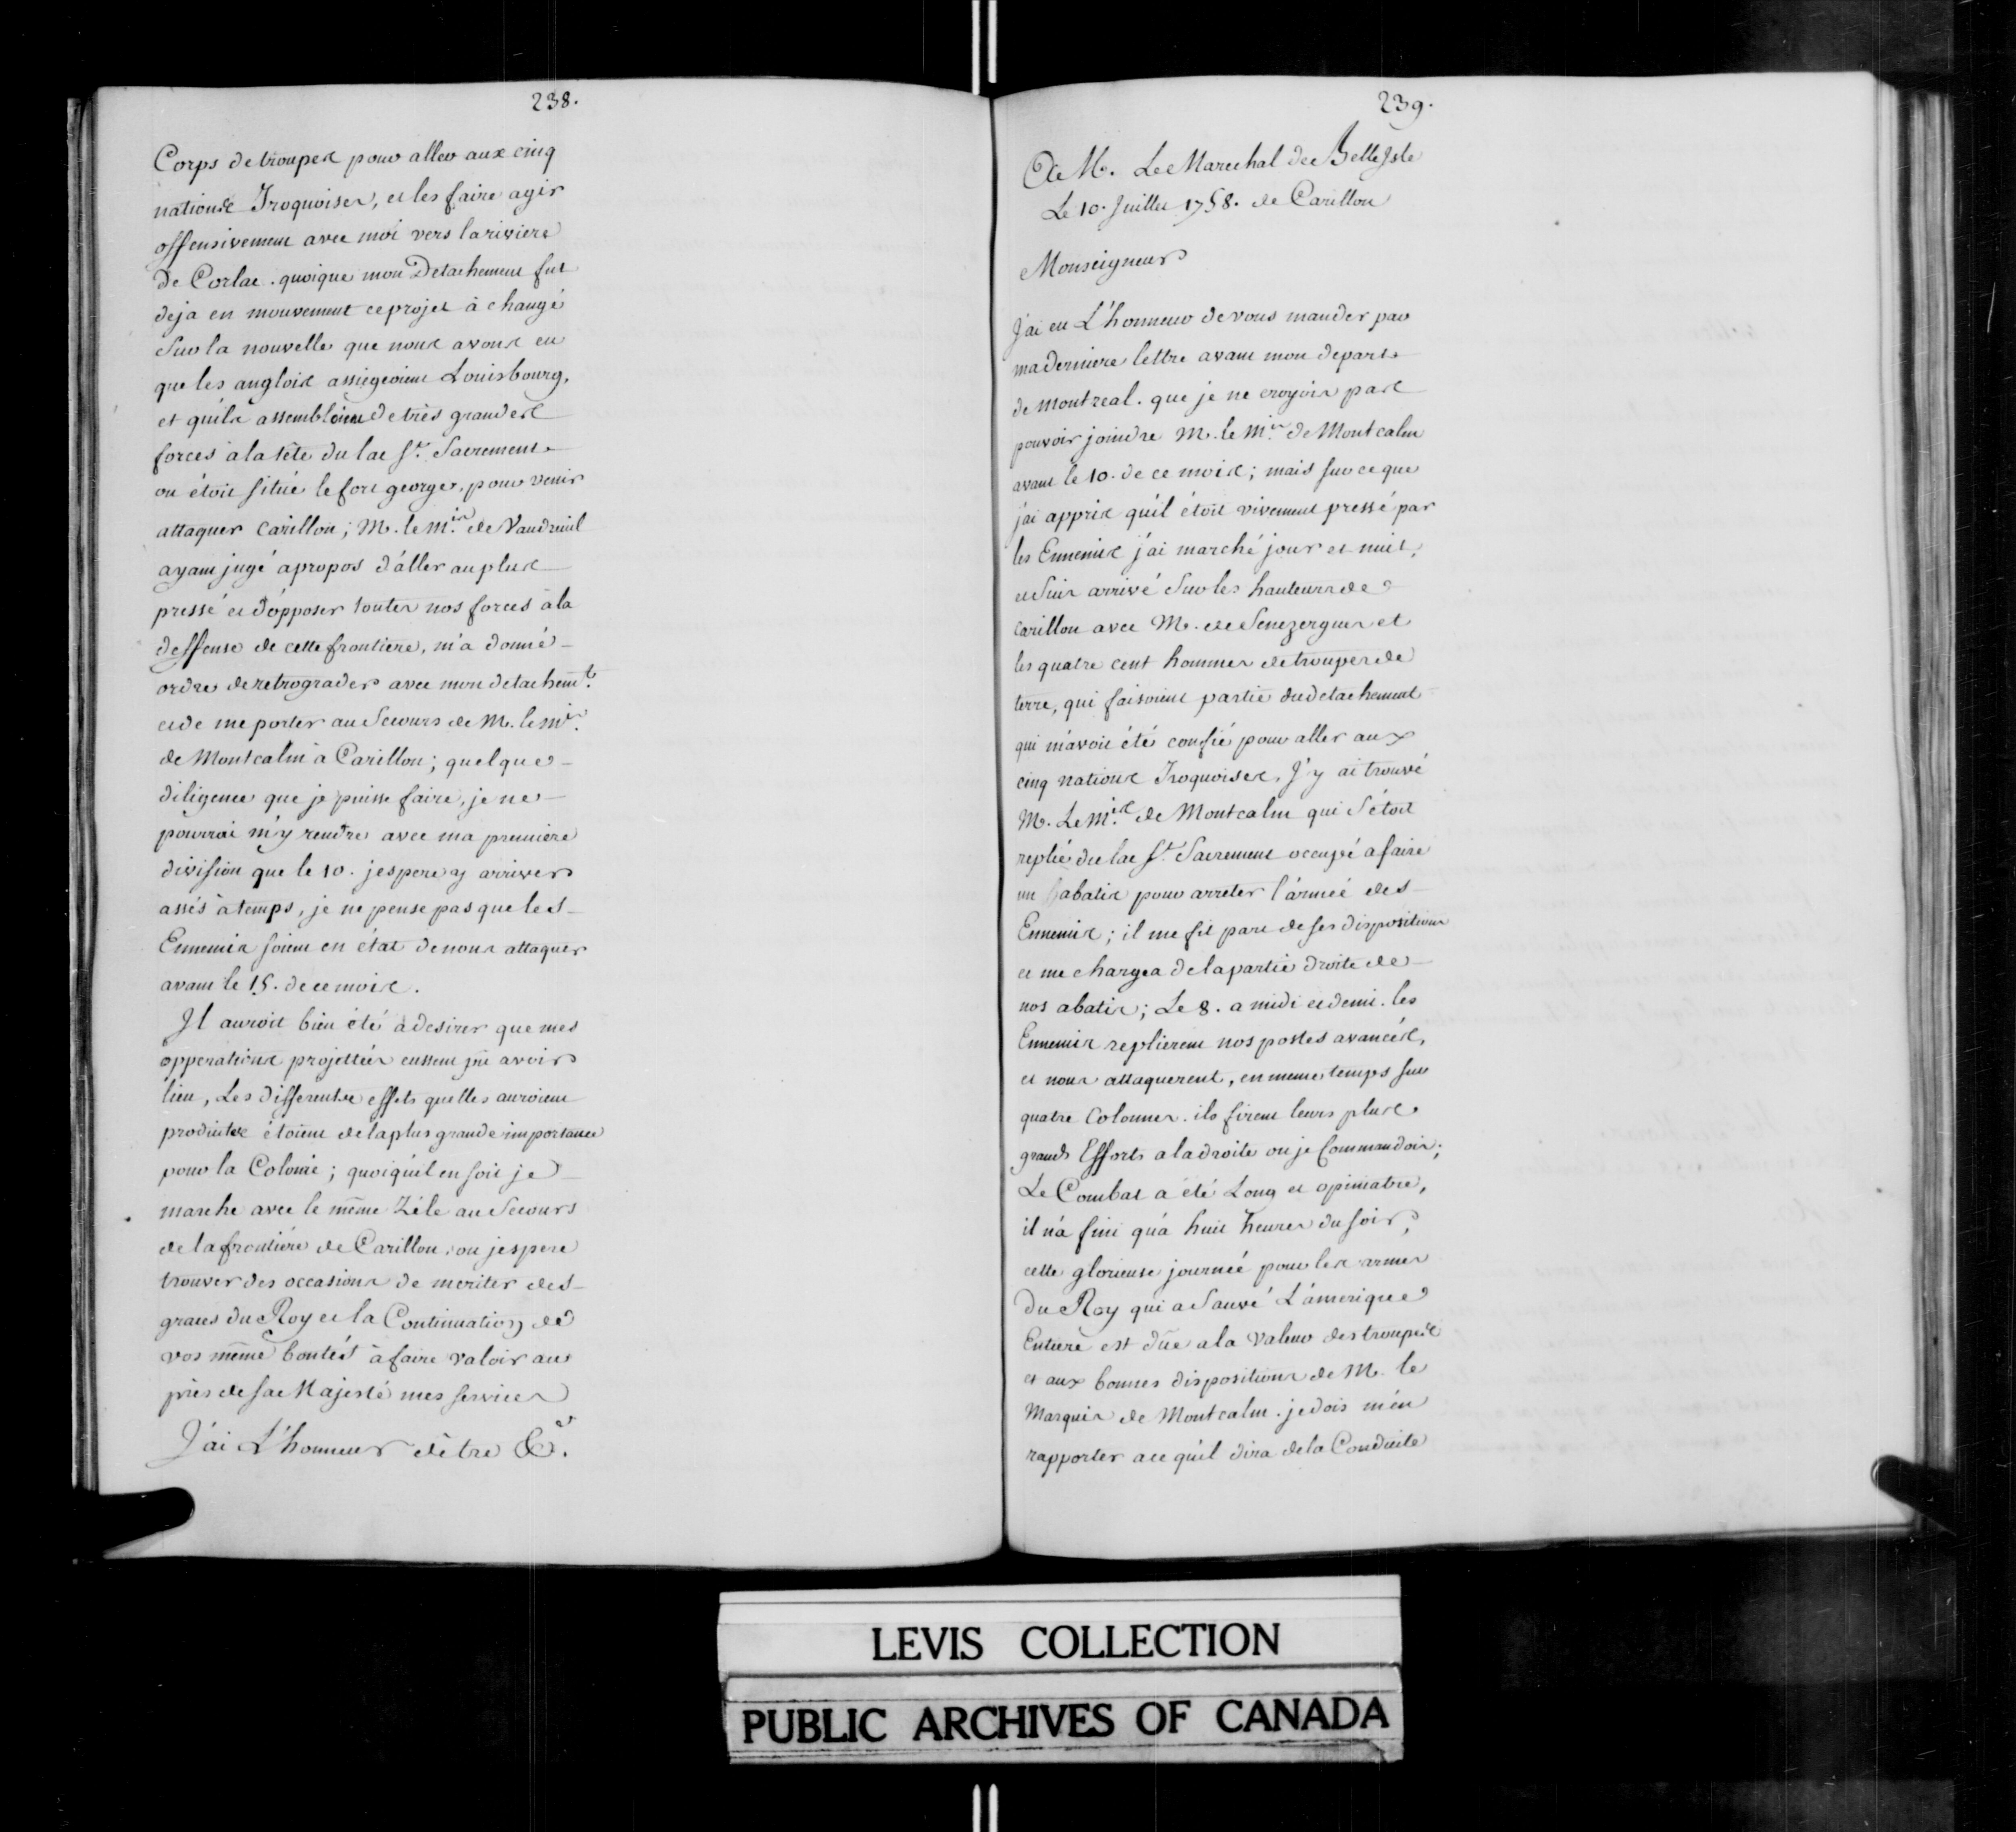 238.
Corps de troupes pour aller aux cinq
nations Iroquoises, et les faire agir
offensivement avec moi vers la riviere
de Corlac. quoique mon Detachement fut
deja en mouvement ce projet à changé
Sur la nouvelle que nous avons eu
que les anglois assiegeoient Louisbourg,
et qu'ils assembloient de très grandes
forces à la tête du lac St. Sacrement
ou étoit situé le fort george, pour venir
attaquer Carillon; M. le Mis. de Vaudreuil
ayant jugé apropos d'áller au plus
pressé et d'ópposer toutes nos forces à la
deffense de cette frontiere, m'a donné
ordre de retrograder avec mon detachemt.
et de me porter au Secours de M. le Mis.
de Montcalm à Carillon; quelque
diligence que je puisse faire, je ne
pourrai m'y rendre avec ma premiere
division que le 10. jespere y arriver
assés à temps, je ne pense pas que les
Ennemis soient en état de nous attaquer
avant le 15. de ce mois.
Il auroit bien été à desirer que mes
opperations projettées eussent pû avoir
lieu, Les differents effets quelles auroient
produites étoient de la plus grande importance
pour la Colonie; quoiqu'il en soit je
marche avec le même Zéle au Secours
de la frontiére de Carillon, ou jespere
trouver des occasions de meriter des
graces du Roy et la Continuation de
vos même bontés à faire valoir au
près de sa Majesté mes services
J'ai L'honneur d'être &c.
239.
A M. Le Marechal de BelleIsle
Le 10. Juillet 1758. de Carillon
Monseigneur
J'ai eu L'honneur de vous mander par
ma derniere lettre avant mon depart
de montreal. que je ne croyois pas
pouvoir joindre M. le Mis. de Montcalm
avant le 10. de ce mois; mais sur ce que
j'ai appris qu'il étoit vivement pressé par
les Ennemis j'ai marché jour et nuit,
et Suis arrivé Sur les hauteurs de
Carillon avec M. de Senezergues et
les quatre cent hommes de troupes de
terre, qui faisoient partie du detachement
qui m'avoit été confié pour aller aux
cinq nations Iroquoises, J'y ai trouvé
M. Le Mis. de Montcalm qui S'étoit
replié du lac St. Sacrement occupé a faire
un abatis pour arreter l'ármée des
Ennemis; il me fit part de ses dispositions
et me chargea de la partie droite de
nos abatis; Le 8. a midi et demi. les
Ennemis replierent nos postes avancés,
et nous attaquerent, en meme temps sur
quatre Colonnes. ils firent leurs plus
grands Efforts a la droite ou je Commandois;
Le Combat a été Long et opiniatre,
il n'a fini qu'a huit heures du soir,
cette glorieuse journée pour les armes
Du Roy qui a Sauvé L'ámerique
Entiere est dûe a la valeur des troupes
et aux bonnes dispositions de M. le
Marquis de Montcalm. je dois m'en
rapporter a ce qu'il dira de la Conduite
LEVIS COLLECTION
PUBLIC ARCHIVES OF CANADA